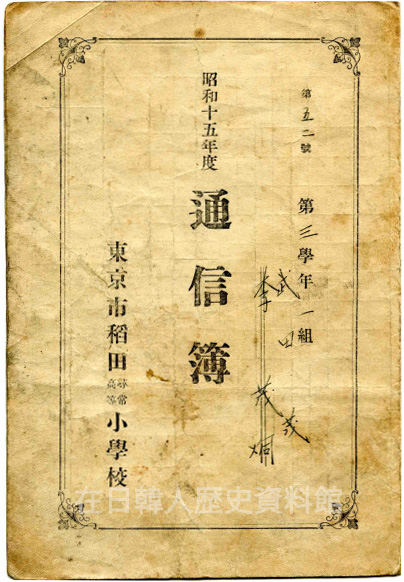 第五二號
第三學年一組
武田茂
李茂
昭和十五年度
通信簿
東京市稻田尋常高等小學校
在日韓人歴史資料館